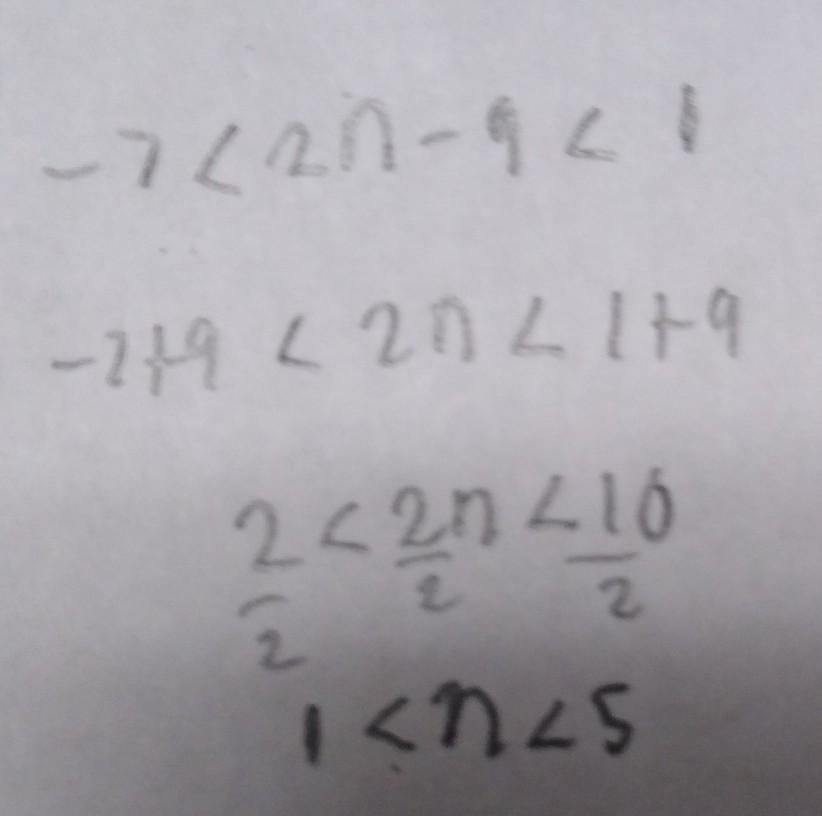 -7 < 2n - 9 < 1
-7+9 < 2n < 1+9
2/2 < 2n/2 < 10/2
1 < n < 5